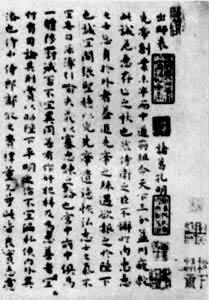 出師表 諸葛孔明
先帝創業未半而中道崩殂今天下三分益州疲敝
此誠危急存亡之秋也然侍衛之臣不懈於內忠志
之士忘身於外者蓋追先帝之殊遇欲報之於陛下
也誠宜開張聖聽以光先帝遺德恢弘志士之氣不
宜妄自菲薄引喻失義以塞忠諫之路也宮中府中俱為
一體陟罰臧否不宜異同若有作姦犯科及為忠善者宜付
有司論其刑賞以昭陛下平明之治不宜偏私使內外異
法也侍中侍郎郭攸之費禕董允等此皆良實志慮